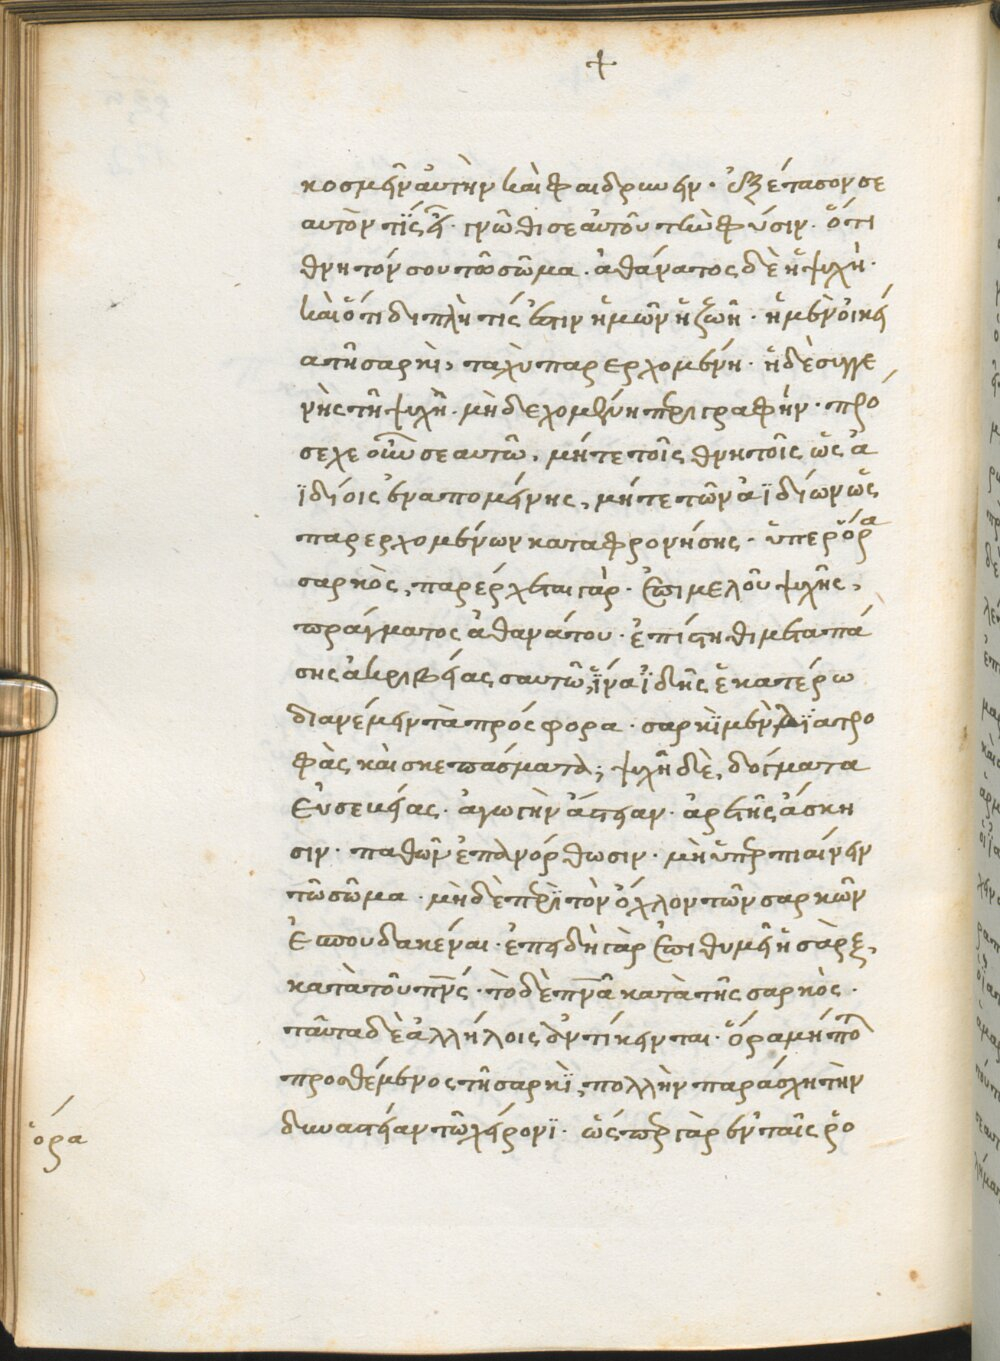 +
κοσμεῖν αὐτὴν καὶ φαιδρύνειν. ἐξέτασον σε
αυτὸν τίς εἶ. γνῶθι σεαυτοῦ τὴν φύσιν. ὅτι
θνητόν σου τὸ σῶμα. ἀθάνατος δὲ ἡ ψυχή.
καὶ ὅτι διπλῆ τίς ἐστιν ἡμῶν ἡ ζωή. ἡ μὲν οἰκεί
α τῇ σαρκὶ, ταχὺ παρερχομένη. ἡ δὲ συγγε
νὴς τῇ ψυχῇ. μὴ δεχομένη περιγραφήν. πρό
σεχε οὖν σεαυτῶ, μήτε τοῖς θνητοῖς ὡς ἀ
ϊδίοις ἐναπομείνης, μήτε τῶν ἀϊδίων ὡς
παρερχομένων καταφρονήσης. ὑπερόρα
σαρκὸς, παρέρχεται γὰρ. ἐπιμελοῦ ψυχῆς,
πράγματος ἀθανάτου. ἐπίστηθι μετα πά
σης ἀκριβείας σαυτῶ, ἵνα ἰδῆς ἑκατέρω
διανέμειν τὰ πρόσφορα. σαρκὶ μὲν διατρο
φὰς καὶ σκεπάσματα; ψυχῆ δὲ, δόγματα
εὐσεβείας. ἀγωγὴν ἀστείαν. ἀρετῆς ἄσκη
σιν. παθῶν ἐπανόρθωσιν. μὴ ὑπερπιαίνειν
τὸ σῶμα. μὴ δὲ περὶ τὸν ὄχλον τῶν σαρκῶν
ἐσπουδακέναι. ἐπειδὴ γὰρ ἐπιθυμεῖ ἡ σὰρξ,
κατὰ τοῦ πν̅ς. τὸ δὲ πν̅α κατὰ τῆς σαρκὸς.
ταῦτα δὲ ἀλλήλοις ἀντίκειται. ὅρα μήποτε
προσθέμενος τῆ σαρκὶ, πολλὴν παράσχη τὴν
δυναστείαν τῶ χείρονϊ. ὥσπερ γὰρ ἐν ταῖς ῥο
ὅρα